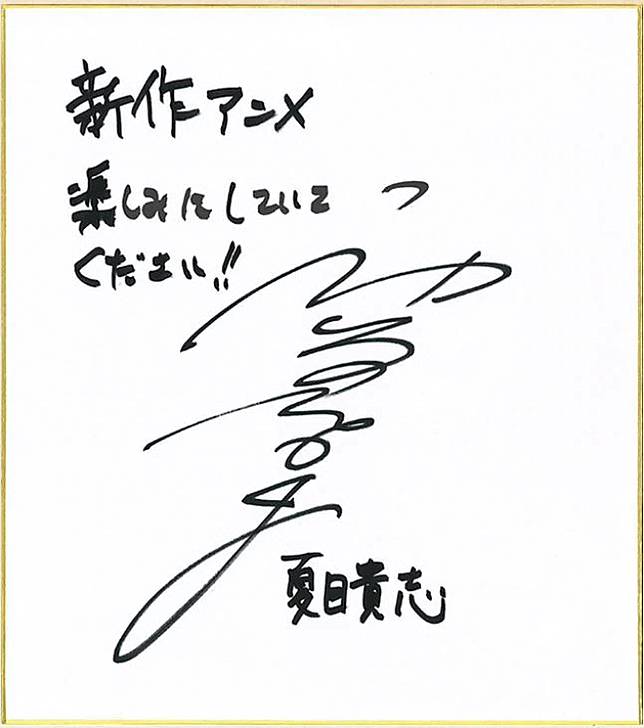 新作アニメ
楽しみにしていて
ください!!
夏目貴志